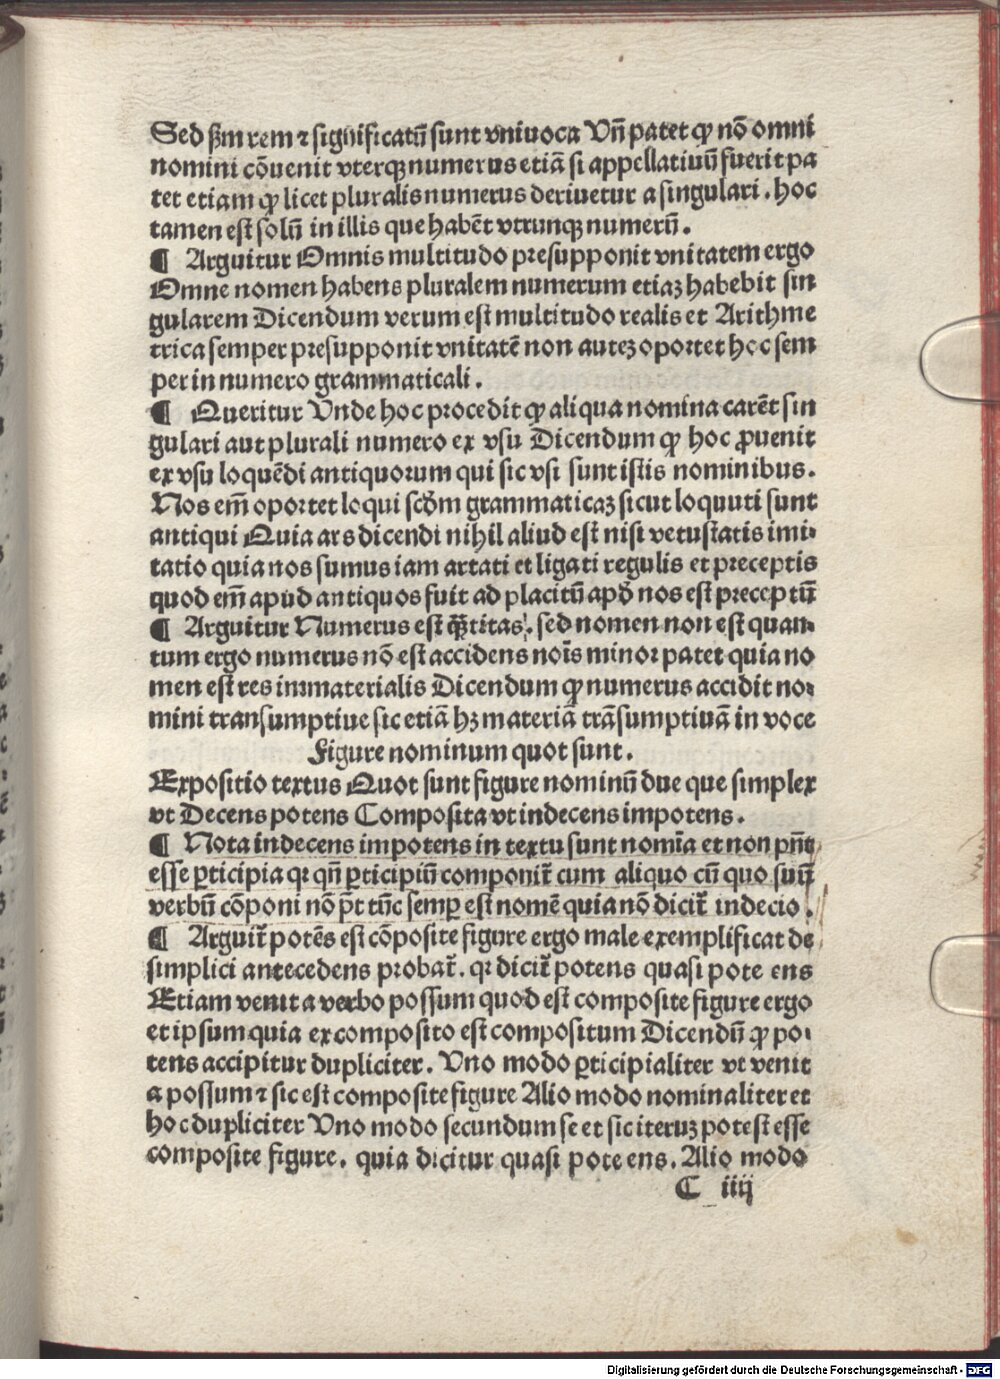 Sed ẜm rem ⁊ significatū sunt vniuoca Vñ patet ꝙ nō omni
nomini cōuenit vterqꝫ numerus etiā si appellatiuū fuerit pa
tet etiam ꝙ licet pluralis numerus deriuetur a singulari . hoc
tamen est solū in illis que habēt vtrunqꝫ numerū .
¶ Arguitur Omnis multitudo presupponit vnitatem ergo
Omne nomen habens pluralem numerum etiaꝫ habebit sin
gularem Dicendum verum est multitudo realis et Arithme
trica semper presupponit vnitatē non auteꝫ oportet hoc sem
per in numero grammaticali .
¶ Queritur Vnde hoc procedit ꝙ aliqua nomina carēt sin
gulari aut plurali numero ex vsu Dicendum ꝙ hoc ꝓuenit
ex vsu loquēdi antiquorum qui sic vsi sunt istis nominibus .
Nos em̄ oportet loqui scd̄m grammaticaꝫ sicut loquuti sunt
antiqui Quia ars dicendi nihil aliud est nisi vetustatis imi⸗
tatio quia nos sumus iam artati et ligati regulis et preceptis
quod em̄ apud antiquos fuit ad placitū apd̄ nos est preceptū
¶ Arguitur Numerus est qͣ̄titas . sed nomen non est quan⸗
tum ergo numerus nō est accidens noīs minor patet quia no
men est res inmaterialis Dicendum ꝙ numerus accidit no⸗
mini transumptiue sic etiā hꝫ materiā trāsumptiuā in voce
Figure nominum quot sunt .
Expositio textus Quot sunt figure nominū due que simplex
vt Decens potens Composita vt indecens impotens .
¶ Nota indecens impotens in textu sunt nomīa et non pn̄t
esse ꝑticipia qꝛ qn̄ ꝑticipiū componit̄ cum aliquo cū quo suū
verbū cōponi nō pt̄ tūc semꝑ est nomē quia nō dicit̄ indecio .
¶ Arguit̄ potēs est cōposite figure ergo male exemplificat de
simplici antecedens probat̄ . qꝛ dicit̄ potens quasi pote ens
Etiam venit a verbo possum quod est composite figure ergo
et ipsum quia ex composito est compositum Dicendū ꝙ po⸗
tens accipitur dupliciter . Vno modo ꝑticipialiter vt venit
a possum ⁊ sic est composite figure Alio modo nominaliter et
hoc dupliciter Vno modo secundum se et sic iteruꝫ potest esse
composite figure . quia dicitur quasi pote ens . Alio modo
C iiij
Digitalisierung gefördert durch die Deutsche Forschungsgemeinschaft - DFG